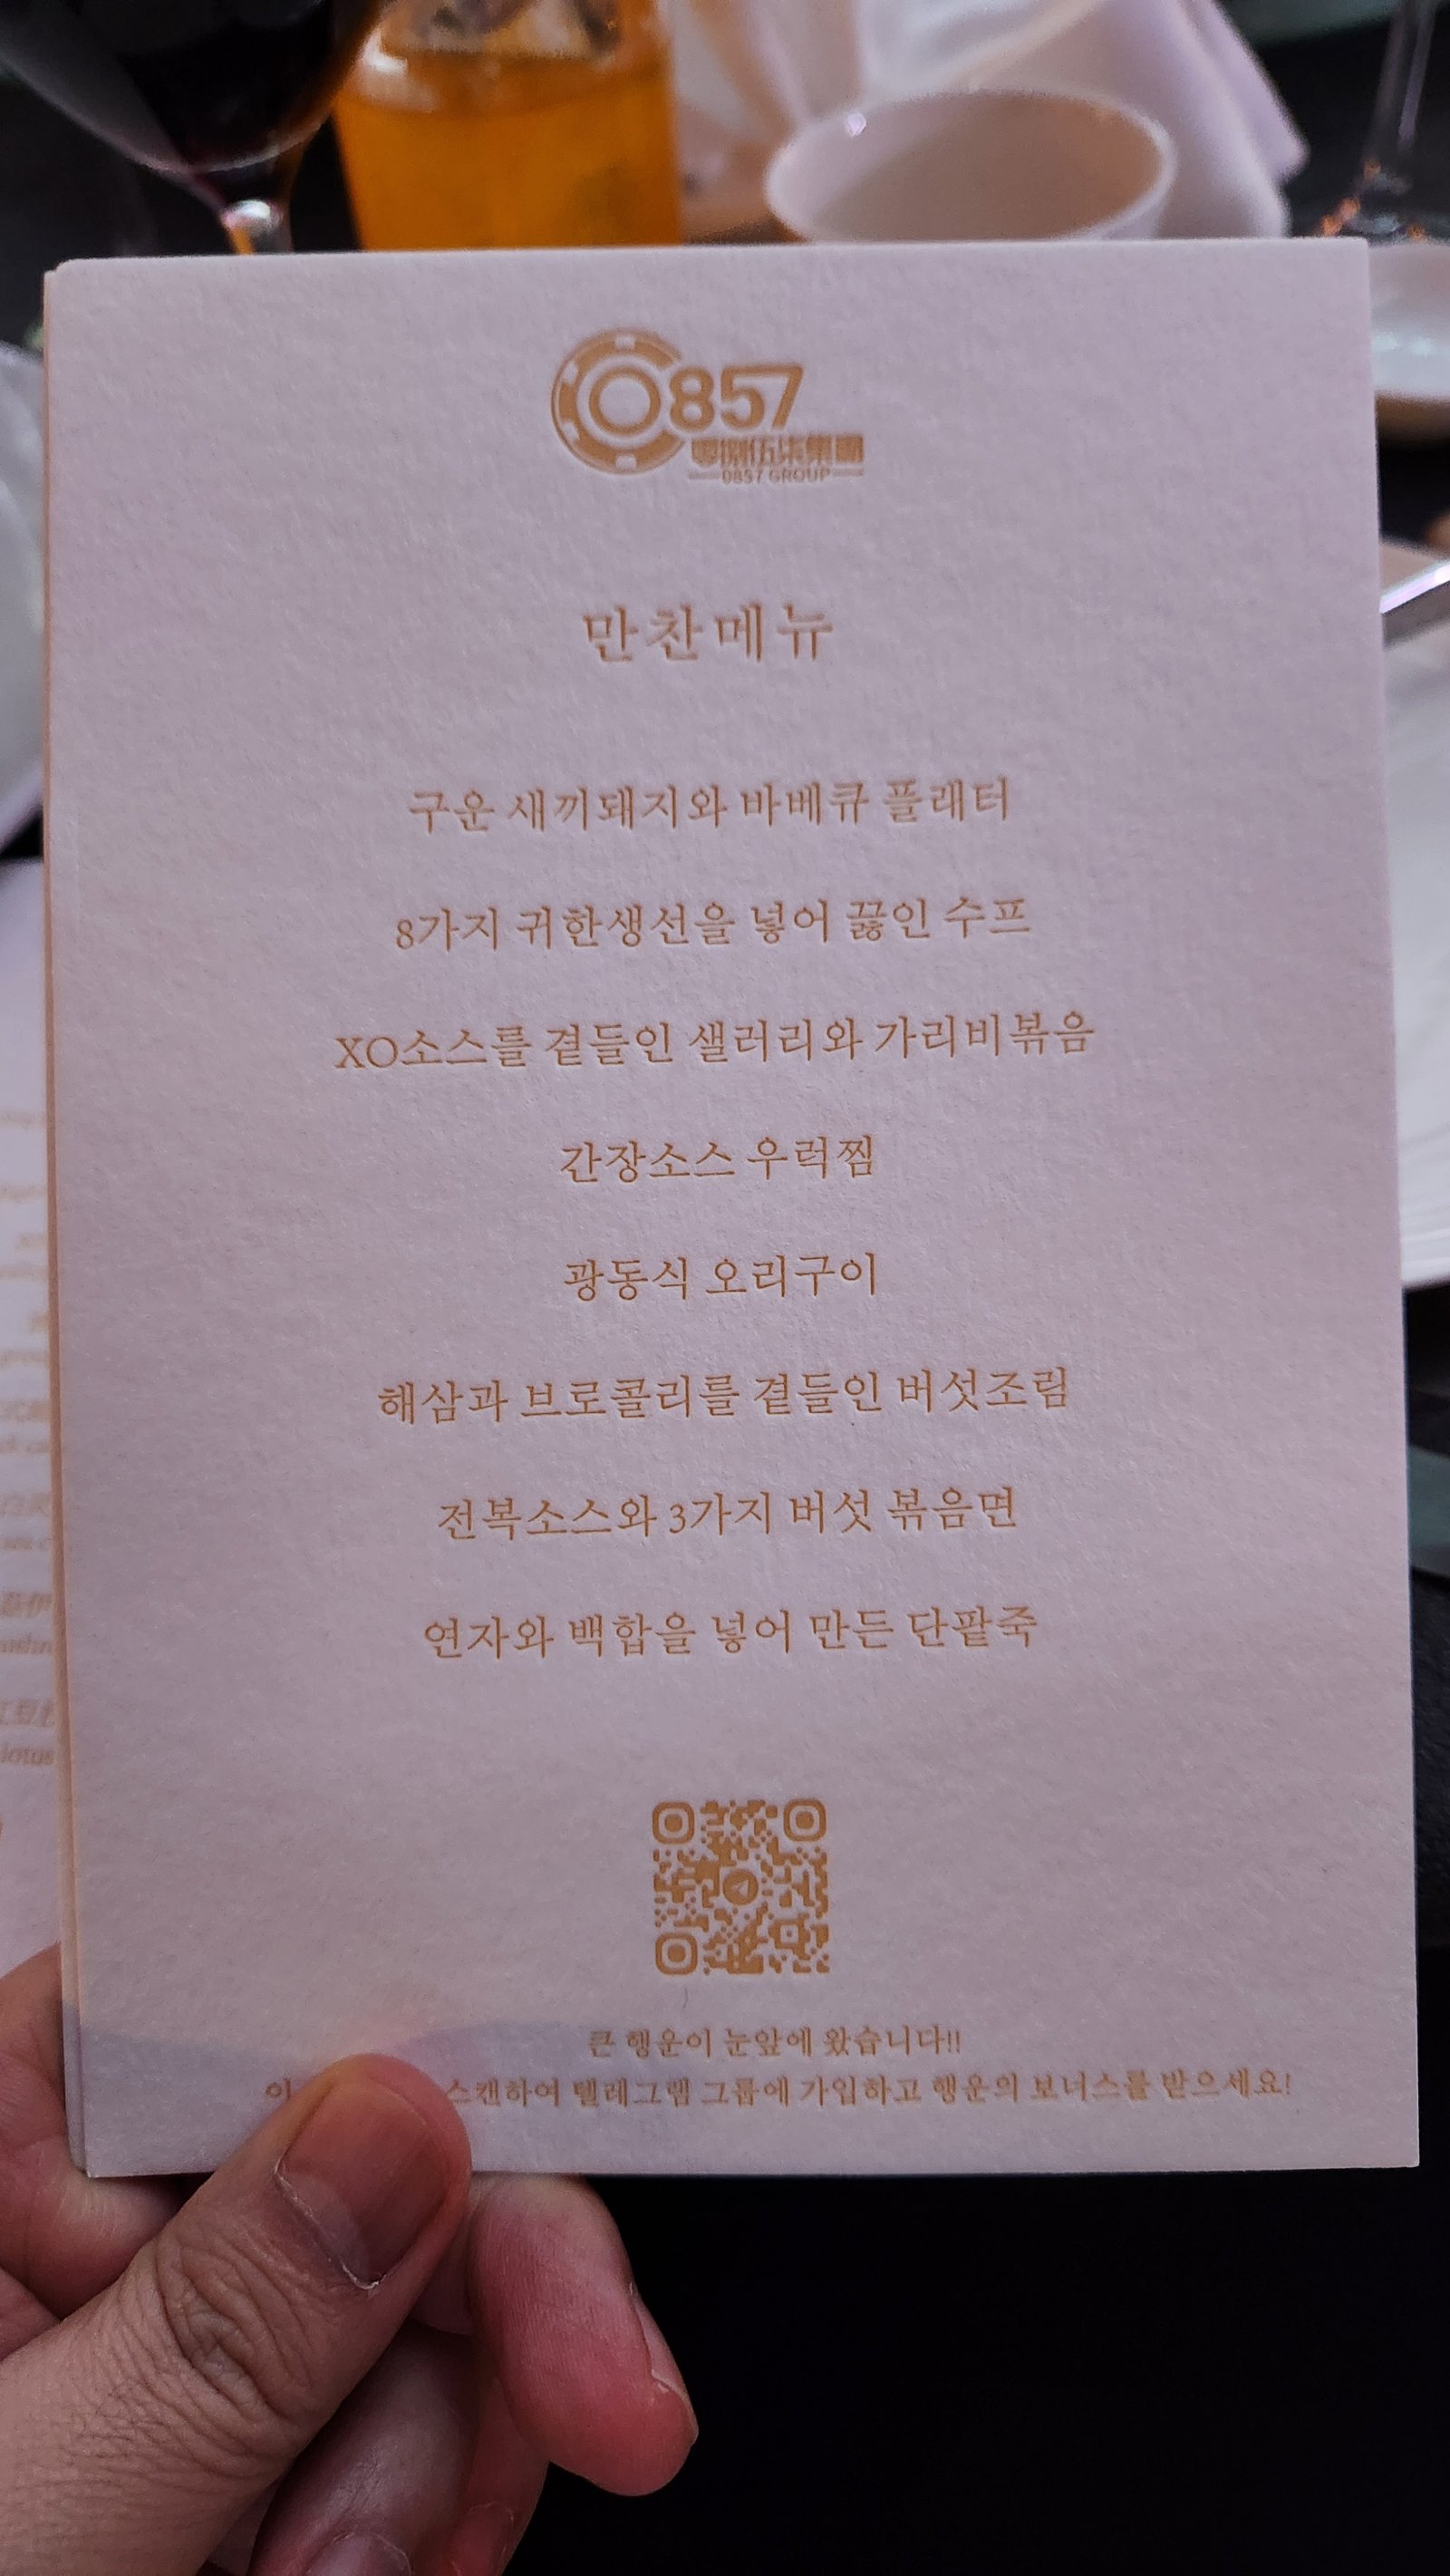 0857
零捌伍柒集團
0857 GROUP
만찬메뉴
구운 새끼돼지와 바베큐 플래터
8가지 귀한생선을 넣어 끓인 수프
XO소스를 곁들인 샐러리와 가리비볶음
간장소스 우럭찜
광동식 오리구이
해삼과 브로콜리를 곁들인 버섯조림
전복소스와 3가지 버섯 볶음면
연자와 백합을 넣어 만든 단팥죽
큰 행운이 눈앞에 왔습니다!!
이 스캔하여 텔레그램 그룹에 가입하고 행운의 보너스를 받으세요!